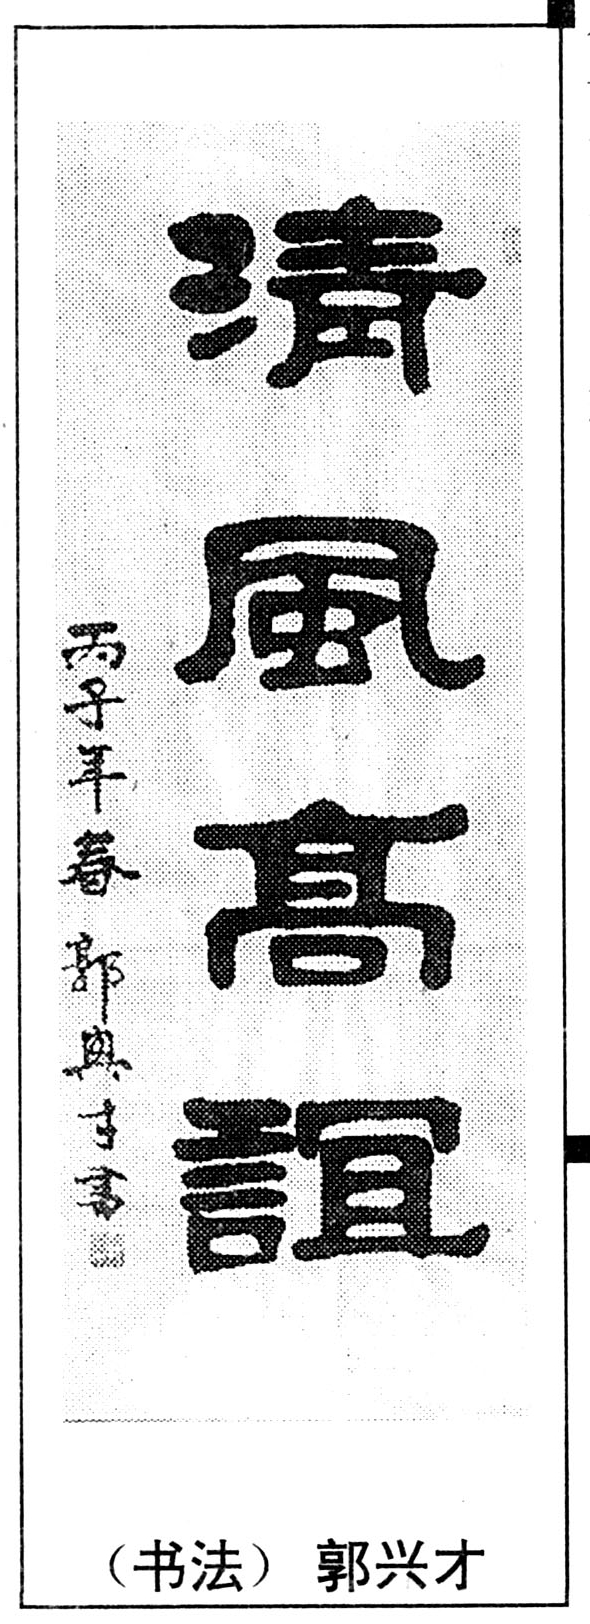 清風高誼
丙子年春郭興才書
（书法）郭兴才